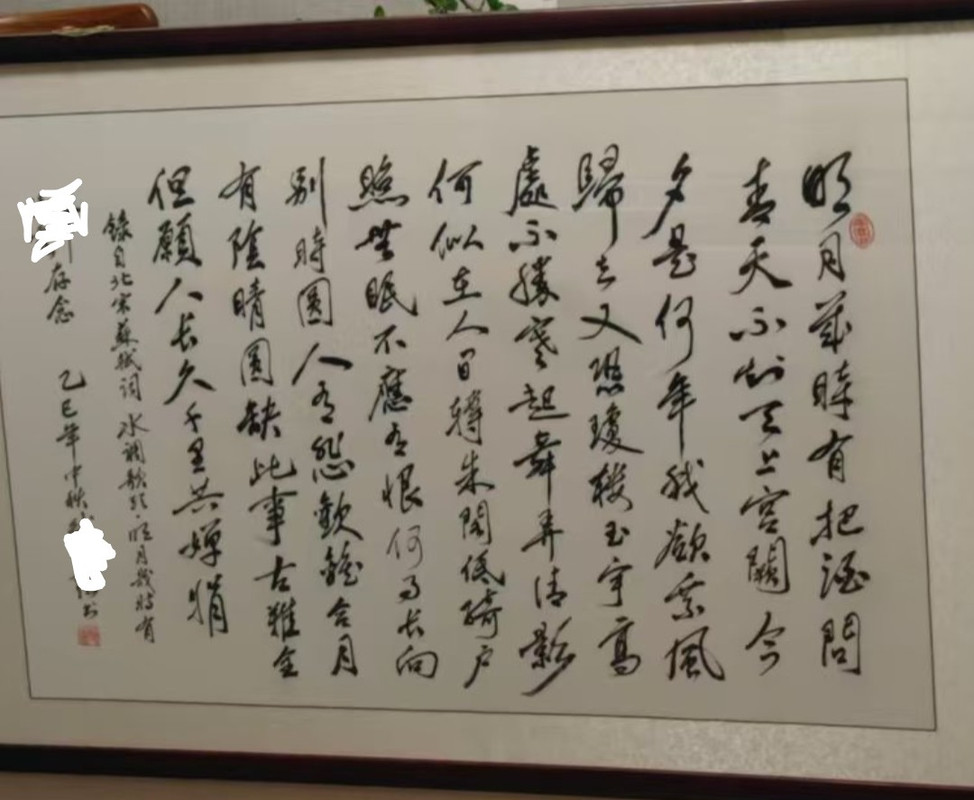 明月幾時有把酒問
青天不知天上宮闕今
夕是何年我欲乘風
歸去又恐瓊樓玉宇高
處不勝寒起舞弄清影
何似在人間轉朱閣低綺戶
照無眠不應有恨何事長向
別時圓人有悲歡離合月
有陰晴圓缺此事古難全
但願人長久千里共嬋娟
錄自北宋蘇軾詞 水調歌頭·明月幾時有
存念 乙巳年中秋 書